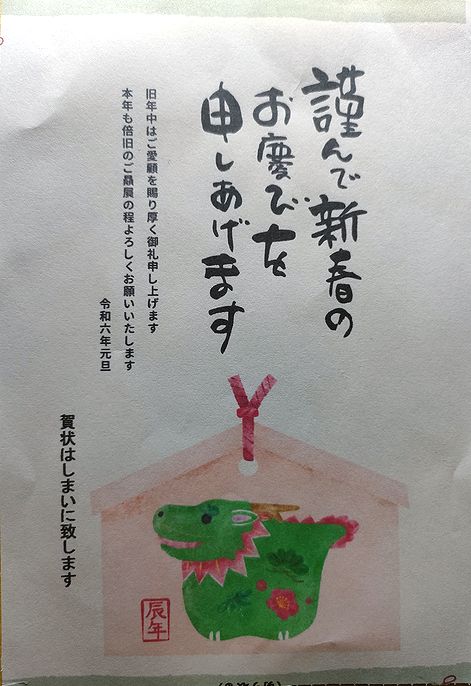 謹んで新春の
お慶びを
申しあげます
旧年中はご愛顧を賜り厚く御礼申し上げます
本年も倍旧のご贔屓の程よろしくお願いいたします
令和六年元旦
賀状はしまいに致します
辰年